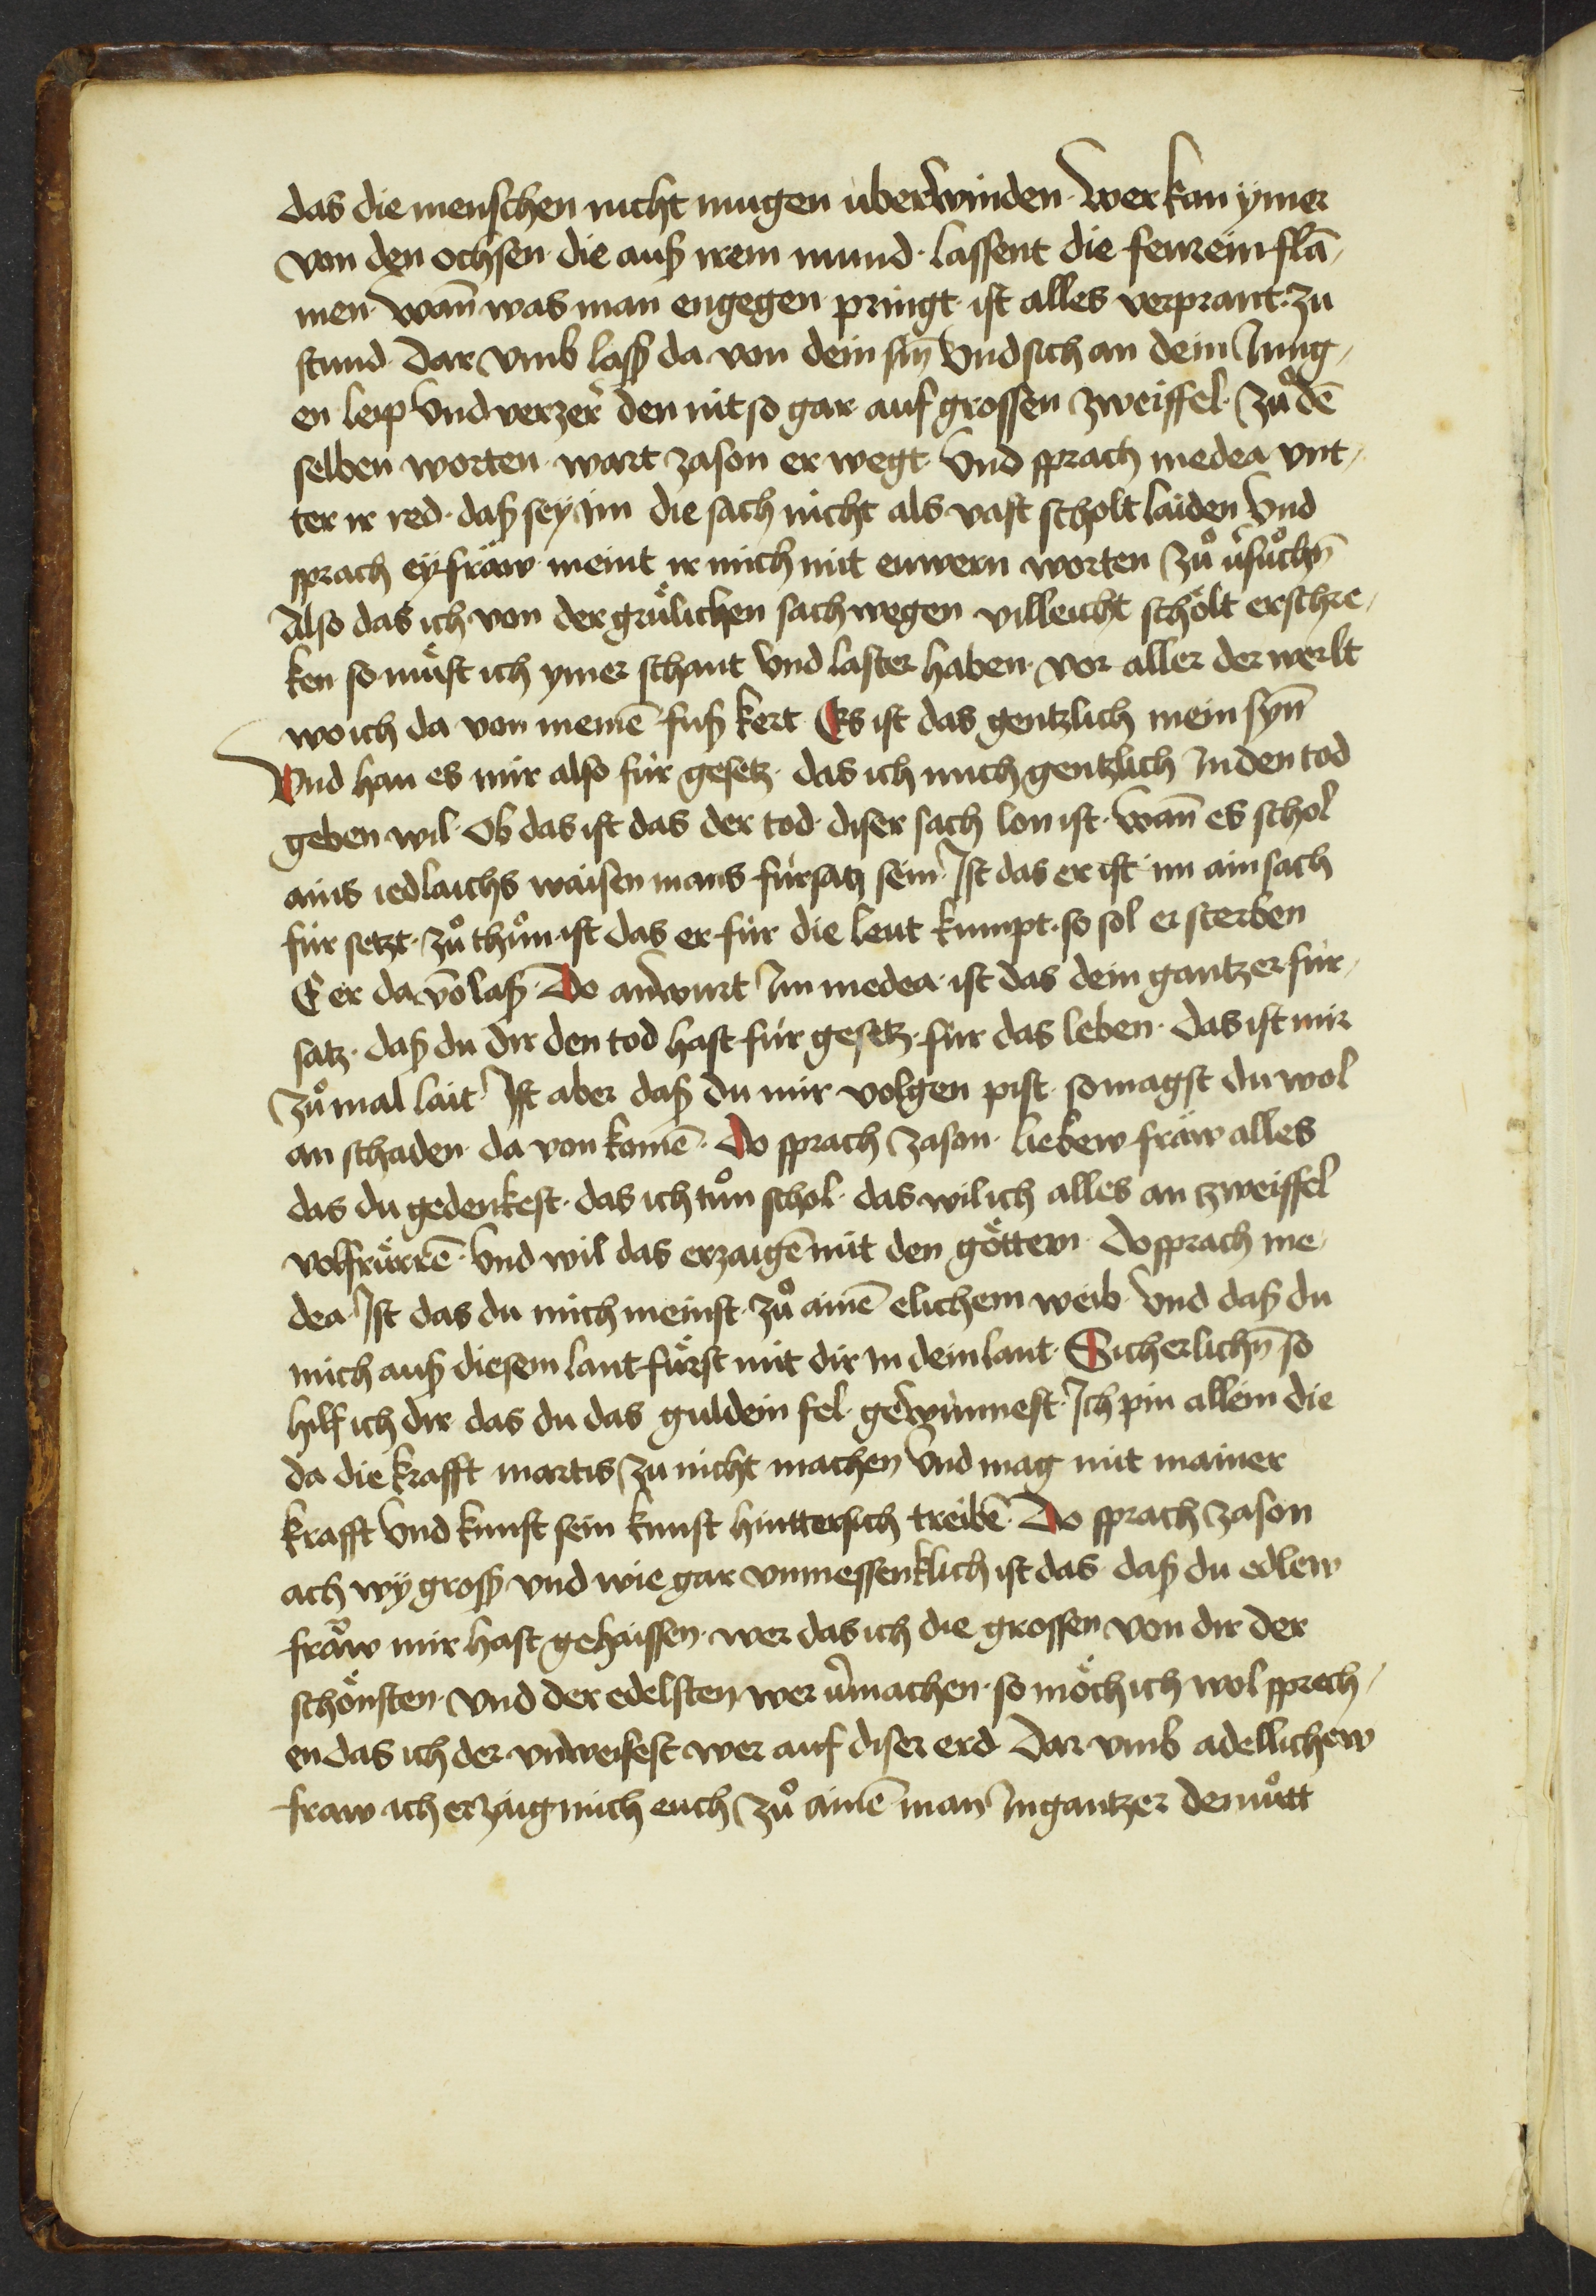 das die menschen nicht mugen uberwinden · Wer kan ymer
von den ochsen · die auß irem mund · lassent die feurein flā⸗
men · wan̄ was man engegen pringt · ist alles verprant · zu
stund · dar vmb laß da von dein sin̄ Vnd sich an dein Jung⸗
en leip Vnd verzer den nit so gar auf grossen zweiffel · Zů dē
selben worten · wart Jason er wegt · Vnd sprach medea vnt⸗
ter ir red · daß sey im die sach nicht als vast scholt laiden Vnd
sprach ey fräw meint ir mich mit euwern worten Zů v̓sůchn̄
Also das ich von der grülichen sach wegen villeicht schölt erschre⸗
ken so müst ich ymer schant Vnd laster haben · vor aller der werlt
wo ich da von meinē fuß kert · Es ist das gentzlich mein syn̄
Vnd han es mir also für gesetz · das ich mich gentzlich In den tod
geben wil · Ob das ist das der tod · diser sach lon ist · wan̄ es schol
ains iedlaichs waisen mans fürsatz sein · Ist das er ist im ain sach
für setzt · zů thůn · ist das er für die leut kumpt · so sol er sterben
E er da vō laß · Do antwurt Im medea · ist das dein gantzer für⸗
satz · daß du dir den tod hast für gesetz · für das leben · das ist mir
Zů mal lait · Ist aber daß du mir volgen pist · so magst du wol
an schaden · da von komē · Do sprach Jason · liebew fräw alles
das du gedenkest · das ich tůn schol · das wil ich alles an zweiffel
volfürrē · Vnd wil das erzaigē mit den göttern · Do sprach me⸗
dea · Ist das du mich meinst · zů ainē elichem weib · Vnd daß du
mich auß diesem lant fürst mit dir In dein lant · Sicherlichn̄ so
hilf ich dir das du das guldein fel · gewinnest · Ich pin allein die
da die krafft martis Zu nicht machen Vnd mag mit mainer
krafft Vnd kunst sein kunst hinttersich treibē · Do sprach Jason
ach wy groß vnd wie gar vnmessenklich ist das · daß du edlew
fräw mir hast gehaissen · wer das ich die grossen von dir der
schönsten · Vnd der edelsten wer v̓machen · so möch ich wol sprech⸗
en das ich der vnweisest wer auf diser erd · Dar vmb adellichew
fraw ich erzaig mich euch Zů ainē man In gantzer demůtt